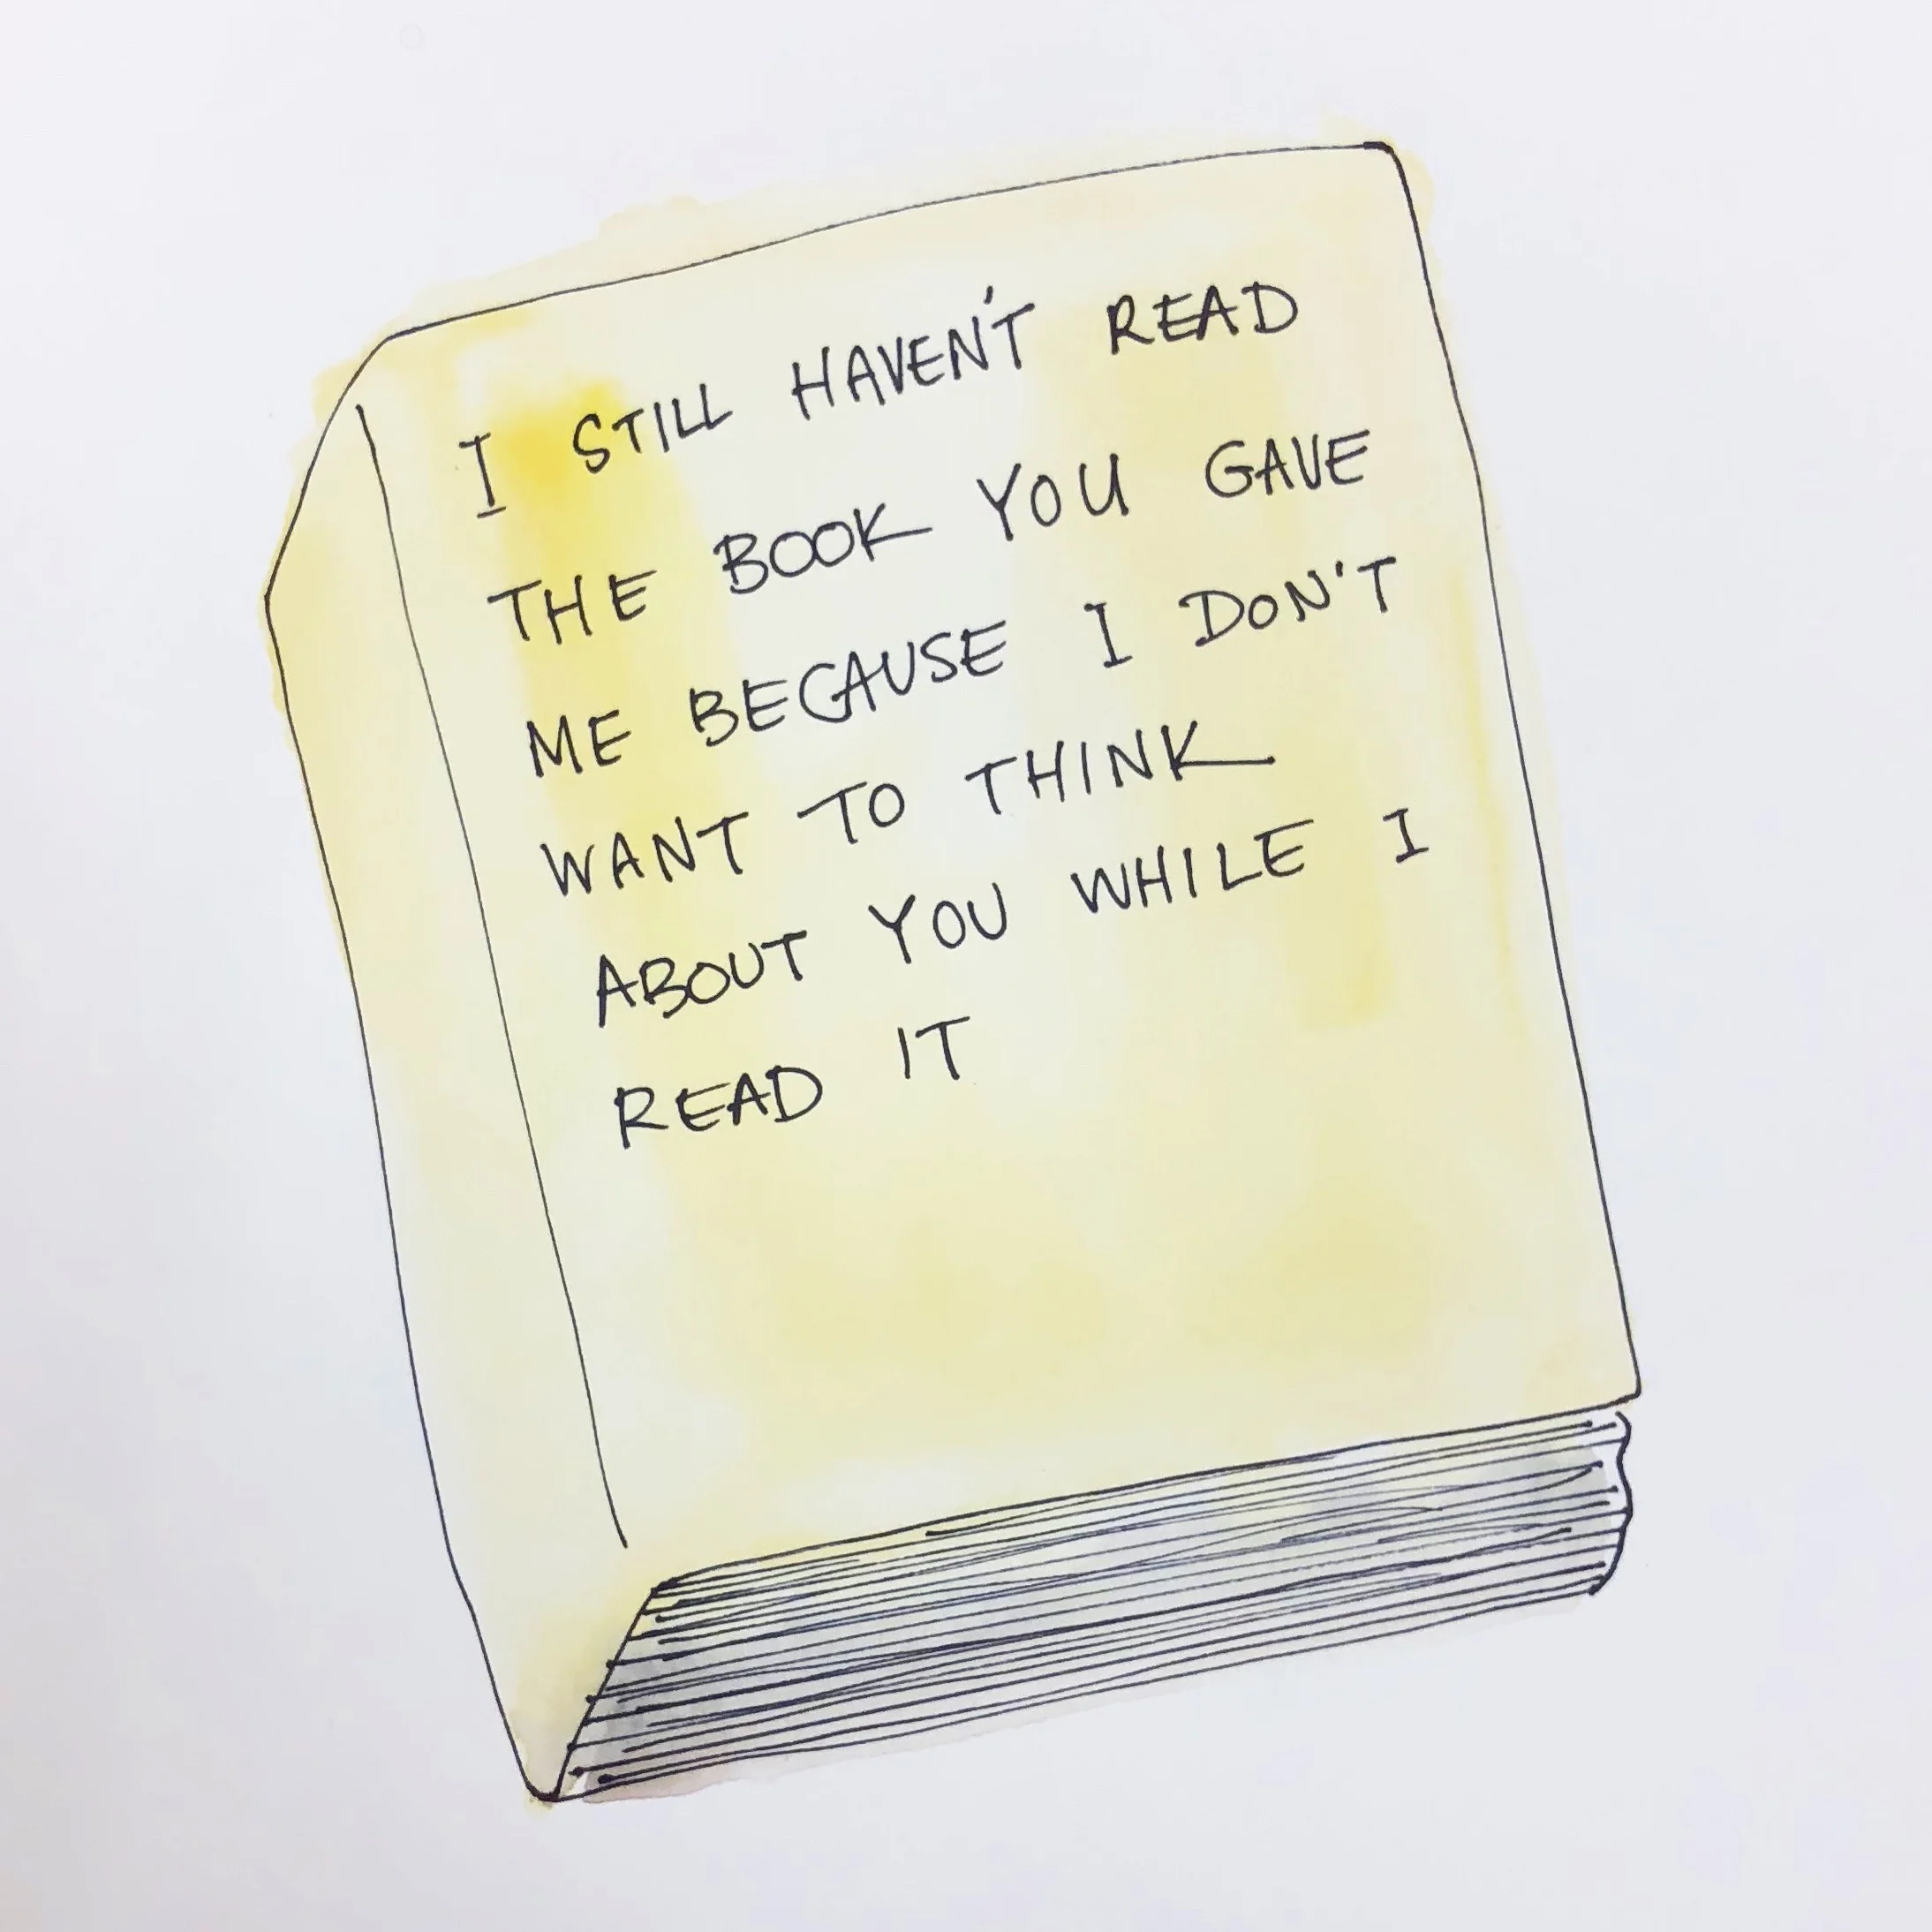 I STILL HAVEN'T READ
THE BOOK YOU GAVE
ME BECAUSE I DON'T
WANT TO THINK
ABOUT YOU WHILE I
READ IT